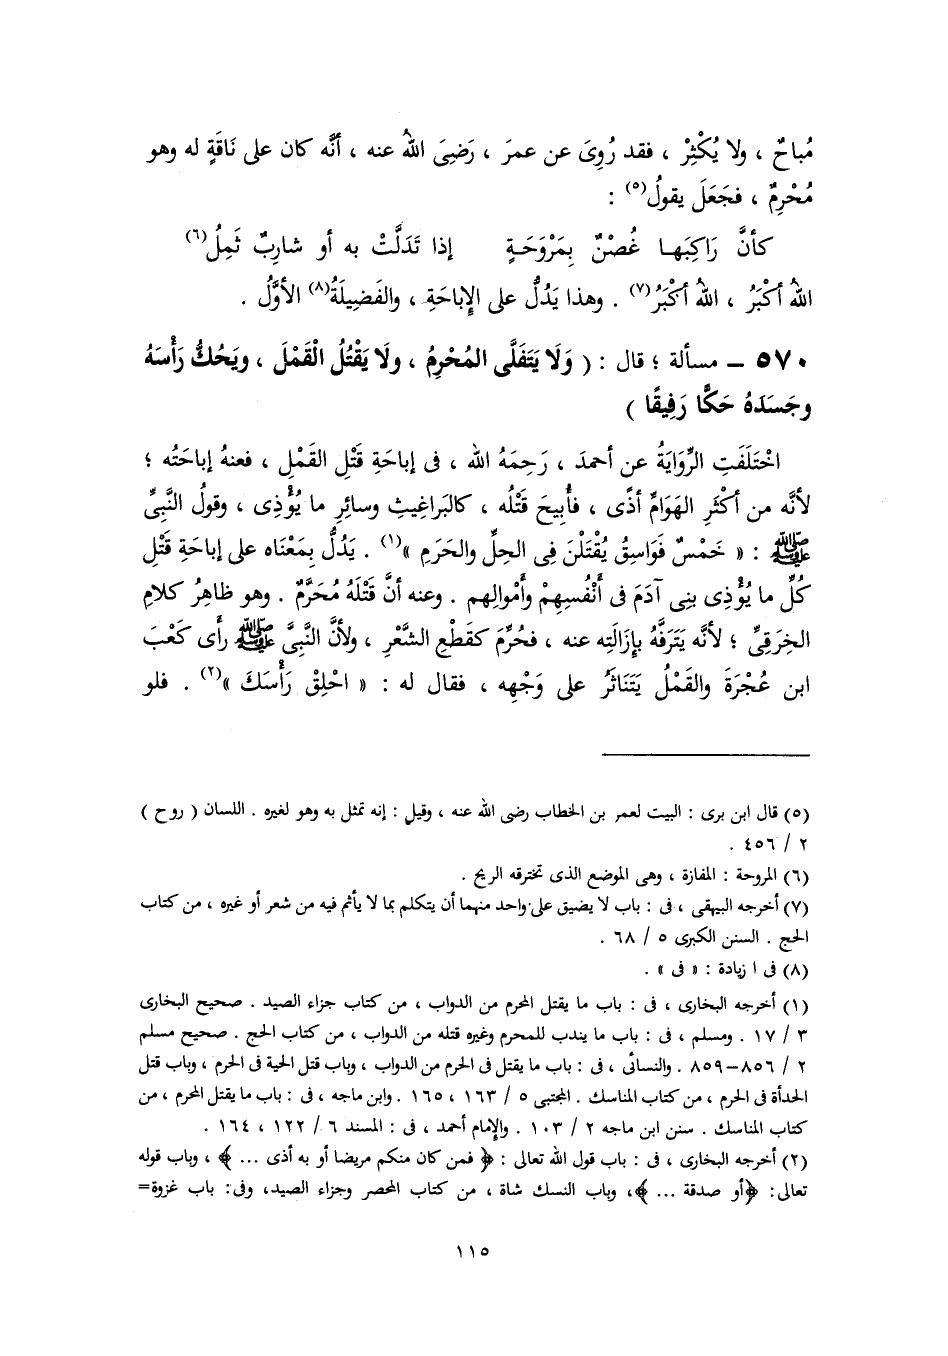 مُباحٌ ، ولا يُكْثِرْ ، فقد رُوِىَ عن عمرَ ، رَضِىَ اللهُ عنه ، أنَّه كان على نَاقَةٍ له وهو
مُحْرِمٌ ، فجَعَلَ يقولُ(٥) :
كأنَّ رَاكِبَهـا غُصْنٌ بِمَرْوَحَـةٍ إذا تَدَلَّتْ به أو شارِبٌ ثَمِلُ(٦)
اللهُ أكْبَرُ ، اللهُ أكْبَرُ(٧) . وهذا يَدُلُّ على الإِباحَةِ ، والفَضِيلَةُ(٨) الأوَّلُ .
٥٧٠ – مسألة ؛ قال : ( وَلَا يَتَفَلَّى المُحْرِمُ ، ولَا يَقْتُلُ الْقَمْلَ ، ويَحُكُّ رَأْسَهُ
وجَسَدَهُ حَكًّا رَفِيقًا )
اخْتَلَفَتِ الرِّوَايَةُ عن أحمدَ ، رَحِمَهُ الله ، فى إباحَةِ قَتْلِ القَمْلِ ، فعنهُ إباحَتُه ؛
لأنَّه من أكْثَرِ الهَوَامِّ أذًى ، فأُبِيحَ قَتْلُه ، كالبَراغِيثِ وسائِرِ ما يُؤْذِى ، وقولُ النَّبِىِّ
ﷺ : « خَمْسٌ فَوَاسِقُ يُقْتَلْنَ فِى الحِلِّ والحَرَمِ »(١) . يَدُلُّ بِمَعْنَاه على إباحَةِ قَتْلِ
كُلِّ ما يُؤْذِى بنِى آدَمَ فى أَنْفُسِهِمْ وأَمْوالِهم . وعنه أنَّ قَتْلَهُ مُحَرَّمٌ . وهو ظاهِرُ كلامِ
الخِرَقِىِّ ؛ لأنَّه يَتَرَفَّهُ بإزَالَتِه عنه ، فحُرِّمَ كقَطْعِ الشَّعْرِ ، ولأنَّ النَّبِىَّ ﷺ رأَى كَعْبَ
ابن عُجْرَةَ والقَمْلُ يَتَناثَرُ على وَجْهِه ، فقال له : « احْلِقْ رَأْسَكَ »(٢) . فلو
(٥) قال ابن برى : البيت لعمر بن الخطاب رضى الله عنه ، وقيل : إنه تمثل به وهو لغيره . اللسان ( روح )
٢ / ٤٥٦ .
(٦) المروحة : المفازة ، وهى الموضع الذى تخترقه الريح .
(٧) أخرجه البيهقى ، فى : باب لا يضيق على واحد منهما أن يتكلم بما لا يأثم فيه من شعر أو غيره ، من كتاب
الحج . السنن الكبرى ٥ / ٦٨ .
(٨) فى ا زيادة : « فى » .
(١) أخرجه البخارى ، فى : باب ما يقتل المحرم من الدواب ، من كتاب جزاء الصيد . صحيح البخارى
٣ / ١٧ . ومسلم ، فى : باب ما يندب للمحرم وغيره قتله من الدواب ، من كتاب الحج . صحيح مسلم
٢ / ٨٥٦–٨٥٩ . والنسائى ، فى : باب ما يقتل فى الحرم من الدواب ، وباب قتل الحية فى الحرم ، وباب قتل
الحدأة فى الحرم ، من كتاب المناسك . المجتبى ٥ / ١٦٣ ، ١٦٥ . وابن ماجه ، فى : باب ما يقتل المحرم ، من
كتاب المناسك . سنن ابن ماجه ٢ / ١٠٣ . والإمام أحمد ، فى : المسند ٦ / ١٢٢ ، ١٦٤ .
(٢) أخرجه البخارى ، فى : باب قول الله تعالى : ﴿ فمن كان منكم مريضا أو به أذى ... ﴾ ، وباب قوله
تعالى : ﴿أو صدقة ... ﴾، وباب النسك شاة ، من كتاب المحصر وجزاء الصيد، وفى : باب غزوة=
١١٥